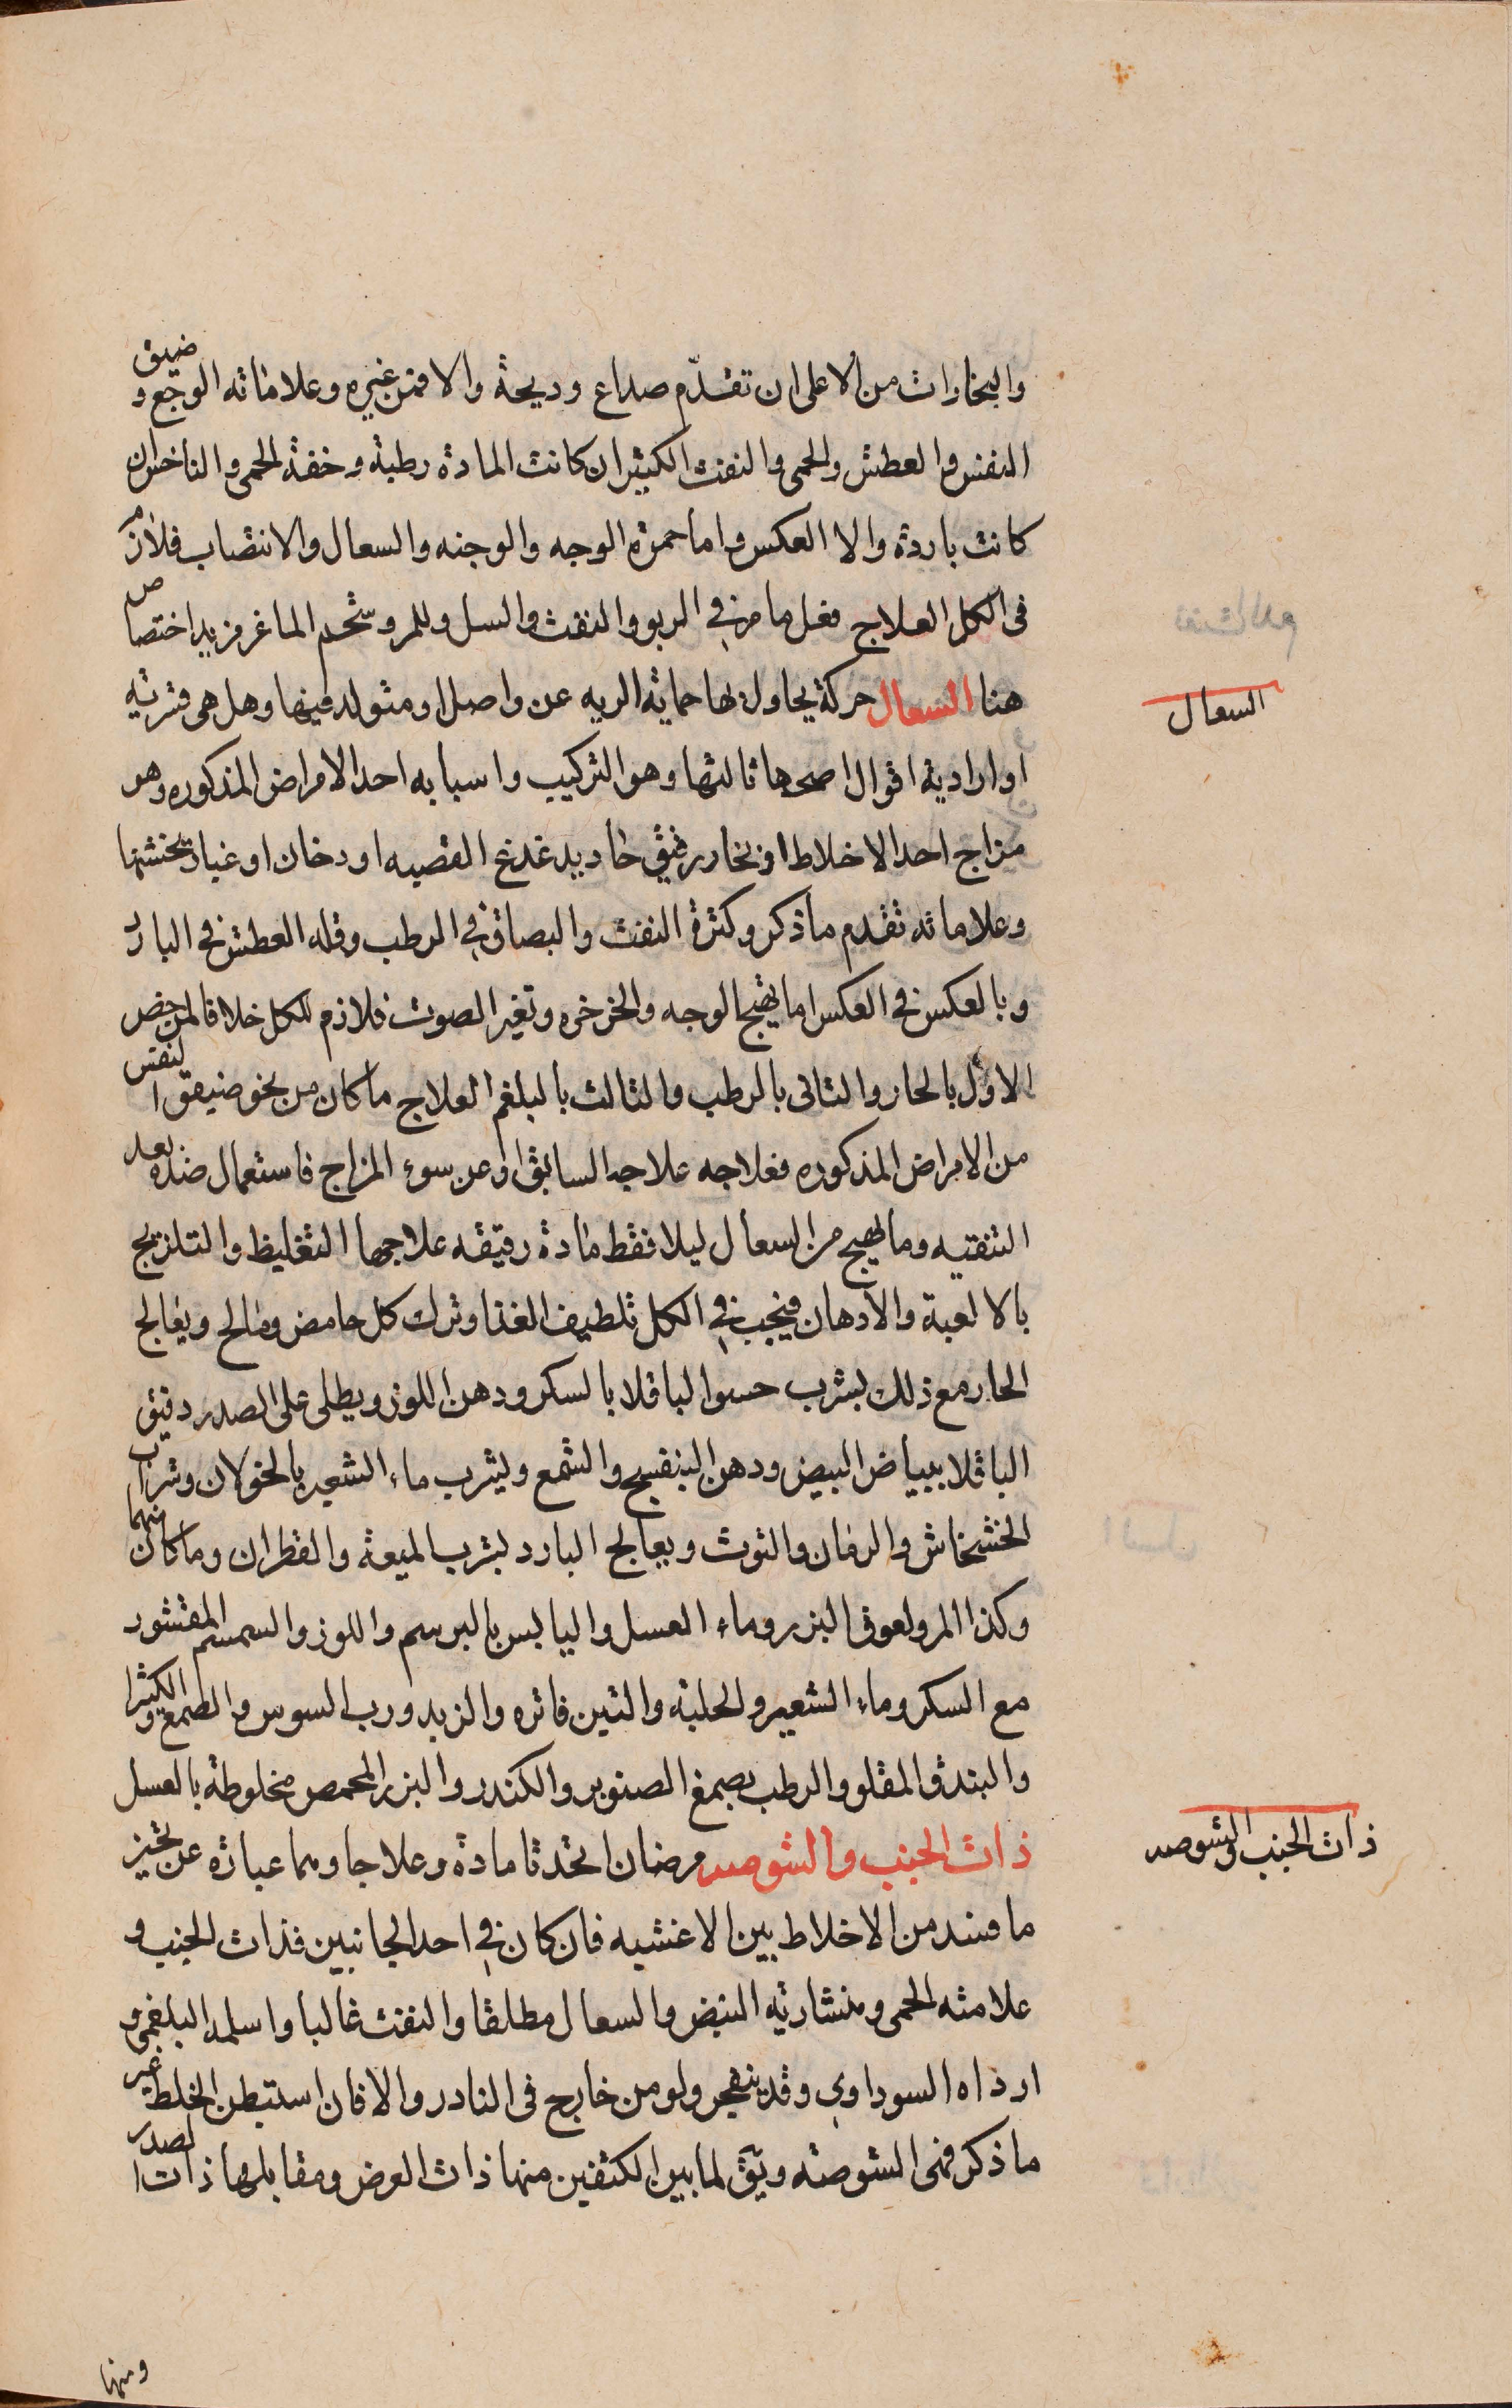 والبخارات من الاعلى ان تقدّم صداع وديحة والا فمن غيره وعلاماته الوجع وضيق
النفس والعطش والحمى والنفث الكثير ان كانت المادة رطبة وخفة الحمى والناخس ان
كانت باردة والا العكس واما حمرة الوجه والوجنه والسعال والانتصاب فلازم
فى الكل العلاج فعل ما مر في الربو والنفث والسل وللمر وشحم الماعز مزيد اختصاص
هنا السعال حركة يحاول بها حماية الريه عن واصل او متولد فيها وهل هى قسرية
او ارادية اقوال اصحها ثالثها وهو التركيب واسبابه احد الامراض المذكوره وهو
مزاج احد الاخلاط او بخار رقيق حاد يدغدغ القصبه او دخان او غبار يخشنها
وعلاماته تقدم ما ذكر وكثرة النفث والبصاق في الرطب وقله العطش في البارد
وبالعكس في العكس اما تهيج الوجه والخرخره وتغير الصوت فلازم للكل خلافا لمن خص
الاول بالحار والثانى بالرطب والثالث بالبلغم العلاج ما كان من نحو ضيق النفس
من الامراض المذكوره فعلاجه علاجه السابق او عن سوء المزاج فاستعمال ضده بعد
التنقيه وما يهيج من السعال ليلا فقط مادة رقيقه علاجها التغليظ والتلزيج
بالالعبة والادهان فيجب في الكل تلطيف الغذا وترك كل حامض ومالح ويعالج
الحار مع ذلك بشرب حسوا لباقلا بالسكر ودهن اللوز ويطلى على الصدر دقيق
الباقلا ببياض البيض ودهن البنفسج والشمع ويشرب ماء الشعير بالخولان وشراب
الخشخاش والرمان والتوت ويعالج البارد بشرب الميعة والقطران وما كان منهما
وكذا المر ولعوق البزر وماء العسل واليابس بالبرسم واللوز والسمسم المقشور
مع السكر وماء الشعير والحلبة والتين فاتره والزبد ورب السوس والصمغ والكثيرا
والبندق المقلو والرطب بصمغ الصنوبر والكندر والبزر المحمص مخلوطة بالعسل
ذات الجنب والشوصه مرضان اتحدتا مادة وعلاجا وهما عبارة عن تحيز
ما فسد من الاخلاط بين الاغشيه فان كان في احد الجانبين فذات الجنب و
علامته الحمى ومنشارية النبض والسعال مطلقا والنفث غالبا واسلمه البلغمى و
ارداه السوداوى وقد ينفجر ولو من خارج فى النادر والا فان استبطن الخلط غير
ما ذكر فهى الشوصة ويق لما بين الكتفين منها ذات العرض ومقابلها ذات الصدر
ومنها
السعال
ذات الجنب والشوصه